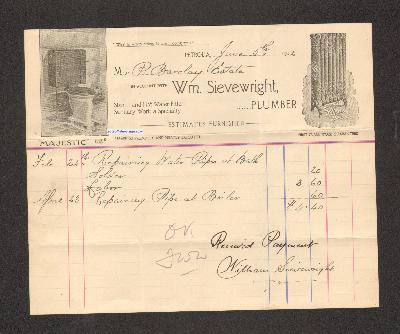 PETROLIA, June 5th 19
Mr P. Barclay Estate
IN ACCOUNT WITH
Wm. Sievewright,
PLUMBER
Steam and Hot Water Fitter
Sanitary Work a Specialty
ESTIMATES FURNISHED
MAJESTIC
Feb 22th Repairing Water Pipe at Bath
Solder 20
Labor 3 60
Repairing Pipe at Boiler 60
$4.40
OK
Received Payment
William Sievewright